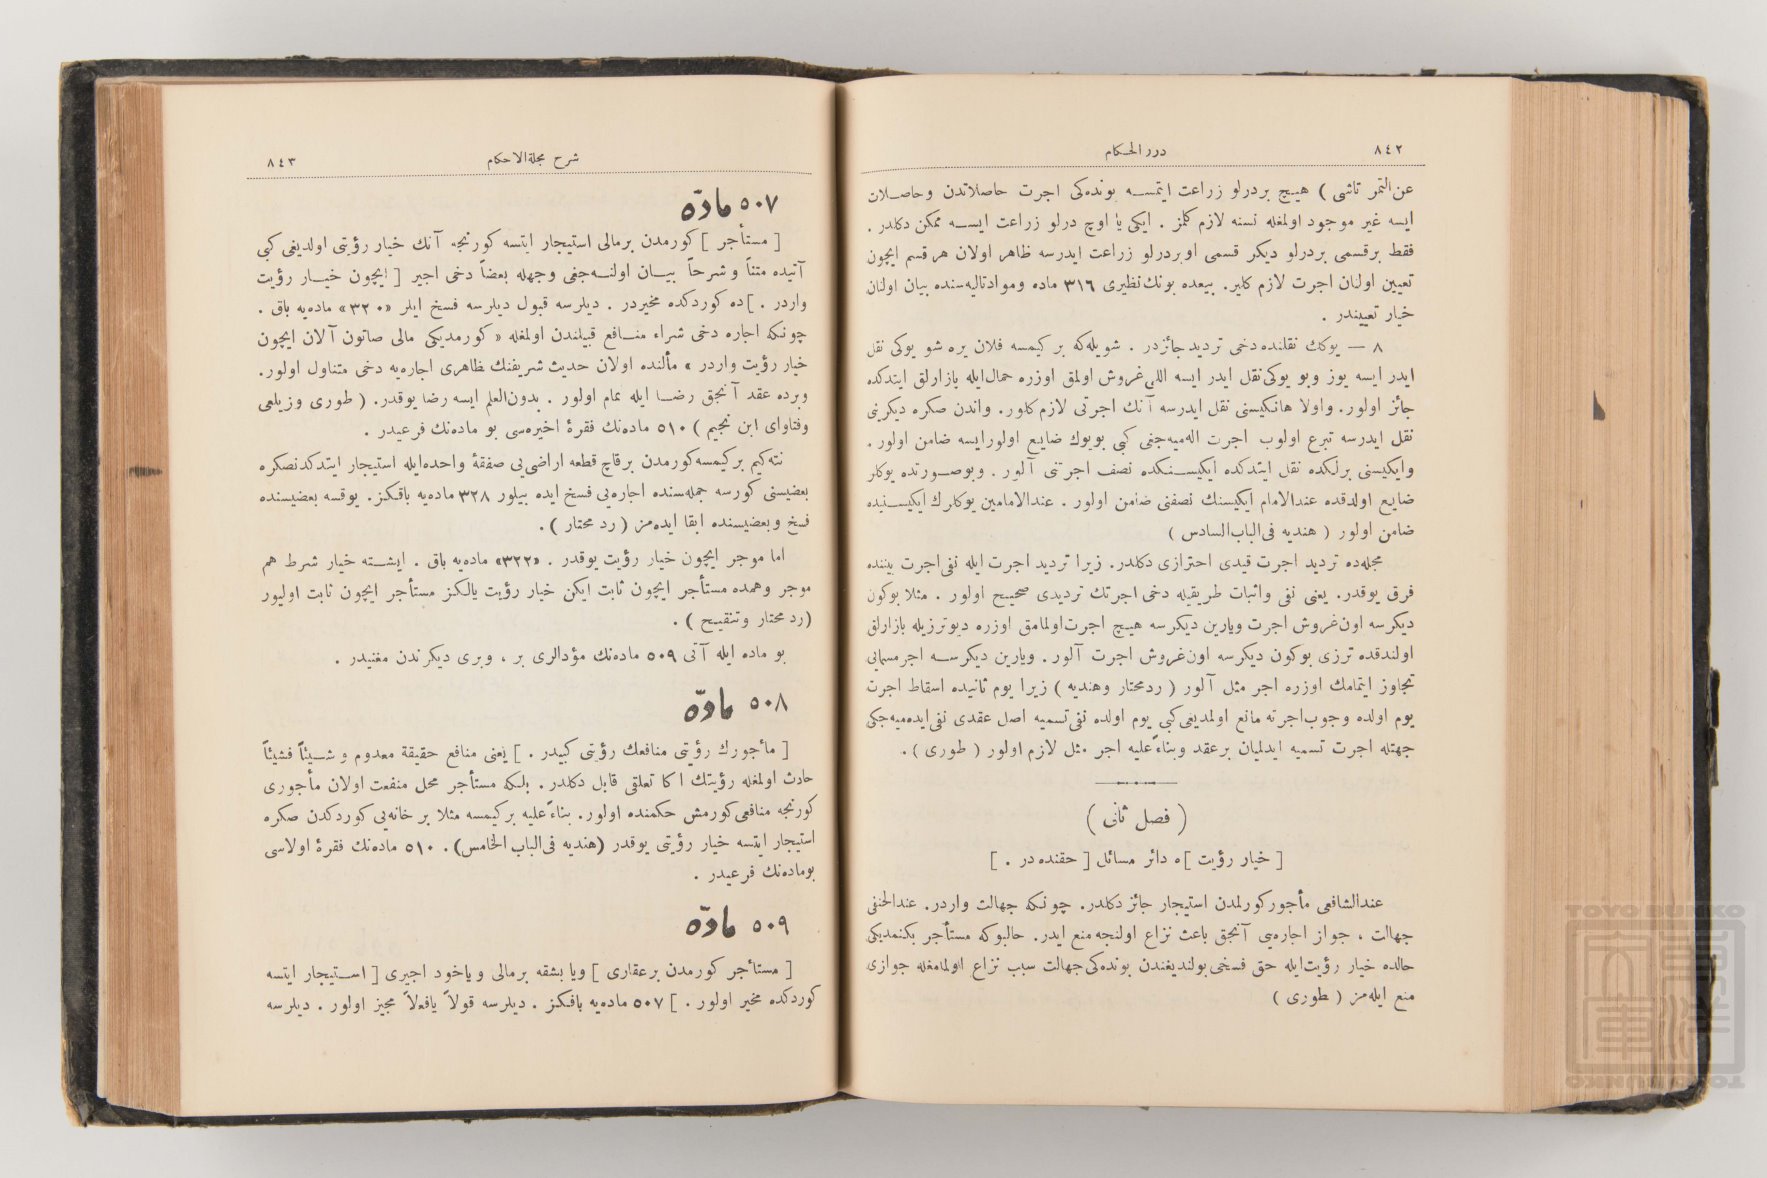 ٨٤٢
درر الحكام
عن التمر تاشى ) هيچ بردرلو زراعت ايتمسه بوندەكى اجرت حاصلاتدن وحاصلات
ايسه غير موجود اولمغله نسنه لازم كلمز . ايكى يا اوچ درلو زراعت ايسه ممكن دكلدر .
فقط برقسمى بردرلو ديكر قسمى اوبردرلو زراعت ايدرسه ظاهر اولان هر قسم ايچون
تعيين اولنان اجرت لازم كلير. بيعده بونك نظيرى ٣١٦ ماده وموادتاليه‌سنده بيان اولنان
خيار تعييندر .
٨ — يوكك نقلنده دخى ترديد جائزدر . شويله‌كه بر كيمسه فلان يره شو يوكى نقل
ايدر ايسه يوز وبو يوكى نقل ايدر ايسه اللى غروش اولمق اوزره حمال ايله بازارلق ايتدكده
جائز اولور. واولا هانكيسنى نقل ايدرسه آنك اجرتى لازم كلور. واندن صكره ديكرينى
نقل ايدرسه تبرع اولوب اجرت اله‌ميه‌جغى كبى بويوك ضايع اولورايسه ضامن اولور .
وايكيسنى برلكده نقل ايتدكده ايكيسنكده نصف اجرتنى آلور . وبوصورتده يوكلر
ضايع اولدقده عندالامام ايكيسنك نصفنى ضامن اولور . عندالامامين يوكلرك ايكيسنيده
ضامن اولور ( هنديه فى الباب السادس )
مجله‌ده ترديد اجرت قيدى احترازى دكلدر. زيرا ترديد اجرت ايله نفى اجرت بيننده
فرق يوقدر. يعنى نفى واثبات طريقيله دخى اجرتك ترديدى صحيح اولور . مثلا بوكون
ديكرسه اون غروش اجرت ويارين ديكرسه هيچ اجرت اولمامق اوزره ديوترزيله بازارلق
اولندقده ترزى بوكون ديكرسه اون غروش اجرت آلور . ويارين ديكرسه اجر مسمايى
تجاوز ايتمامك اوزره اجر مثل آلور ( ردمحتار وهنديه ) زيرا يوم ثانيده اسقاط اجرت
يوم اولده وجوب اجرته مانع اولمديغى كبى يوم اولده نفى تسميه اصل عقدى نفى ايده‌ميه‌جكى
جهتله اجرت تسميه ايدلميان برعقد وبناءً عليه اجر مثل لازم اولور ( طورى ) .
( فصل ثانى )
[ خيار رؤيت ]ه دائر مسائل [ حقنده‌در . ]
عندالشافعى مأجور كورلمدن استيجار جائز دكلدر. چونكه جهالت واردر. عندالحنفى
جهالت ، جواز اجاره‌يى آنجق باعث نزاع اولنجه منع ايدر. حالبوكه مستأجر بكنمديكى
حالده خيار رؤيت ايله حق فسخى بولنديغندن بوندەكى جهالت سبب نزاع اولمامغله جوازى
منع ايله‌مز ( طورى )
شرح مجلة الاحكام
٨٤٣
٥٠٧ مادّه
[ مستأجر ] كورمدن برمالى استيجار ايتسه كورنجه آنك خيار رؤيتى اولديغى كبى
آتيده متناً وشرحاً بيان اولنه‌جغى وجهله بعضاً دخى اجير [ ايچون خيار رؤيت
واردر . ]ده كوردكده مخيردر . ديلرسه قبول ديلرسه فسخ ايلر «٣٢٠» ماده‌يه باق .
چونكه اجاره دخى شراء منافع قبيلندن اولمغله « كورمديكى مالى صاتون آلان ايچون
خيار رؤيت واردر » مألنده اولان حديث شريفنك ظاهرى اجاره‌يه دخى متناول اولور.
وبرده عقد آنجق رضا ايله تمام اولور . بدون العلم ايسه رضا يوقدر. ( طورى وزيلعى
وفتاواى ابن نجيم ) ٥١٠ ماده‌نك فقرۀ اخيره‌سى بو ماده‌نك فرعيدر .
نته‌كيم بركيمسه كورمدن برقاچ قطعه اراضى‌يى صفقۀ واحده‌ايله استيجار ايتدكدنصكره
بعضيسنى كورسه جمله‌سنده اجاره‌يى فسخ ايده بيلور ٣٢٨ ماده‌يه باقكز. يوقسه بعضيسنده
فسخ وبعضيسنده ابقا ايده‌مز ( رد محتار ) .
اما موجر ايچون خيار رؤيت يوقدر . «٣٢٢» ماده‌يه باق . ايشته خيار شرط هم
موجر وهمده مستأجر ايچون ثابت ايكن خيار رؤيت يالكز مستأجر ايچون ثابت اوليور
(رد محتار وتنقيح ) .
بو ماده ايله آتى ٥٠٩ ماده‌نك مؤدالرى بر ، وبرى ديكرندن مغنيدر .
٥٠٨ مادّه
[ مأجورك رؤيتى منافعك رؤيتى كبيدر . ] يعنى منافع حقيقة معدوم و شيئاً فشيئاً
حادث اولمغله رؤيتك اكا تعلقى قابل دكلدر . بلكه مستأجر محل منفعت اولان مأجورى
كورنجه منافعى كورمش حكمنده اولور. بناءً عليه بركيمسه مثلا بر خانه‌يى كوردكدن صكره
استيجار ايتسه خيار رؤيتى يوقدر (هنديه فى الباب الخامس) . ٥١٠ ماده‌نك فقرۀ اولاسى
بوماده‌نك فرعيدر .
٥٠٩ مادّه
[ مستأجر كورمدن برعقارى ] ويا بشقه برمالى وياخود اجيرى [ استيجار ايتسه
كوردكده مخير اولور . ] ٥٠٧ ماده‌يه باقكز . ديلرسه قولاً يافعلاً مجيز اولور . ديلرسه
TOYO BUNKO